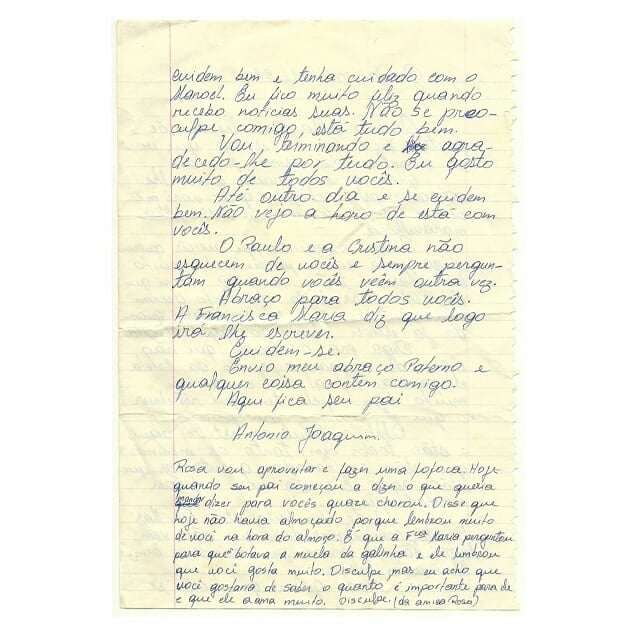 cuidem bem e tenha cuidado com o
Manoel. Eu fico muito feliz quando
recebo noticias suas. Não se preo-
culpe comigo, está tudo bem.
Vou terminando e agra-
decedo-lhe por tudo. Eu gosto
muito de todos vocês.
Até outro dia e se cuidem
bem. Não vejo a hora de está com
vocês.
O Paulo e a Cristina não
esquecem de vocês e sempre pergun-
tam quando vocês vêem outra vez.
Abraço para todos vocês.
A Francisca Maria diz que logo
irá lhe escrever.
Cuidem-se.
Envio meu abraço Paterno e
qualquer coisa contem comigo.
Aqui fica seu pai
Antonio Joaquim.
Rosa vou aproveitar e fazer uma fofoca. Hoje
quando seu pai começou a dizer o que queria
mandar dizer para vocês quaze chorou. Disse que
hoje não havia almoçado porque lembrou muito
de você na hora do almoço. É que a Fca Maria perguntou
para quem botava a muela da galinha e ele lembrou
que você gosta muito. Disculpe mas eu acho que
você gostaria de saber o quanto é importante para ele
e que ele a ama muito. Disculpe. (da amiga Rosa)